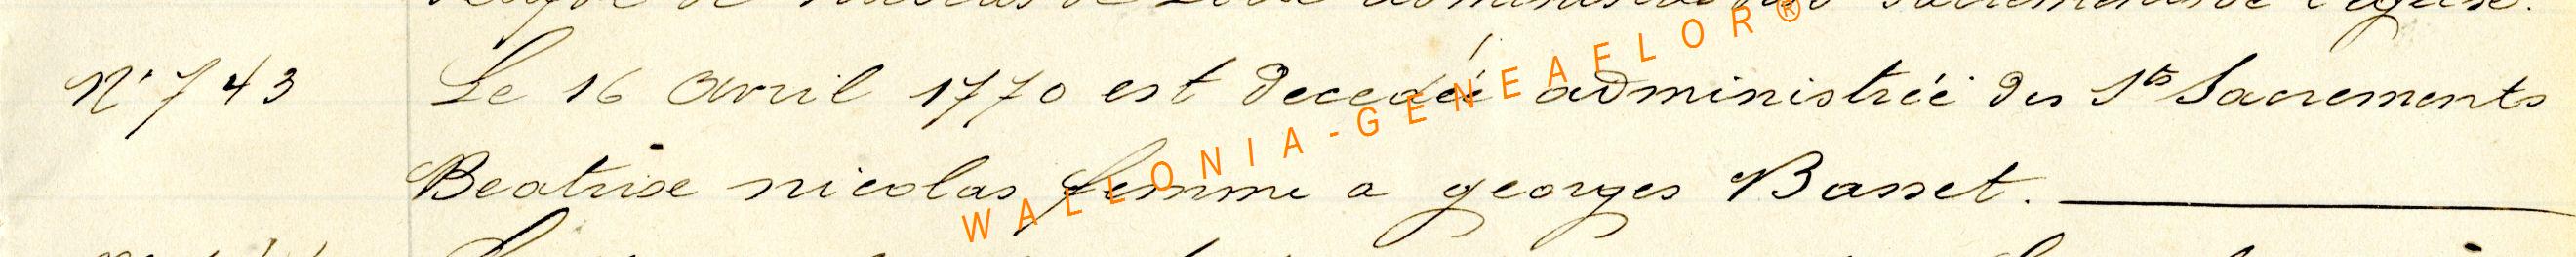 de l'église.
N° 743 Le 16 Avril 1770 est decedée administrée des Sts Sacrements
Beatrise nicolas femme a georges Basset.
WALLONIA-GENEAFLOR®